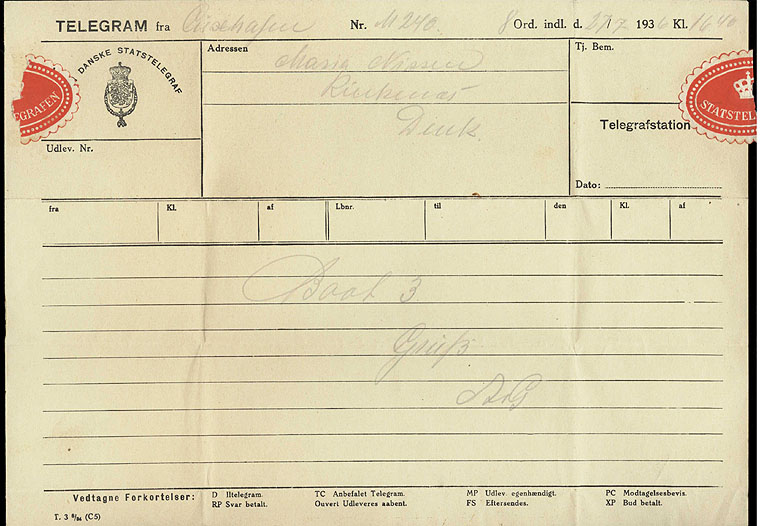 TELEGRAM fra Cuxhafen Nr. M 240. 8 Ord. indl. d. 27/7 1936 Kl. 1640
DANSKE STATSTELEGRAF
EGRAFEN
Udlev. Nr.
Adressen
Maria Nissen
Rinkenæs
Denk
Tj. Bem.
STATSTEL
Telegrafstation
Dato:
fra Kl. af Lbnr. til den Kl. af
Baat 3
Gruß
Vedtagne Forkortelser: D Iltelegram. TC Anbefalet Telegram. MP Udlev. egenhændigt. PC Modtagelsesbevis.
RP Svar betalt. Ouvert Udleveres aabent. FS Eftersendes. XP Bud betalt.
T. 3 (C5)